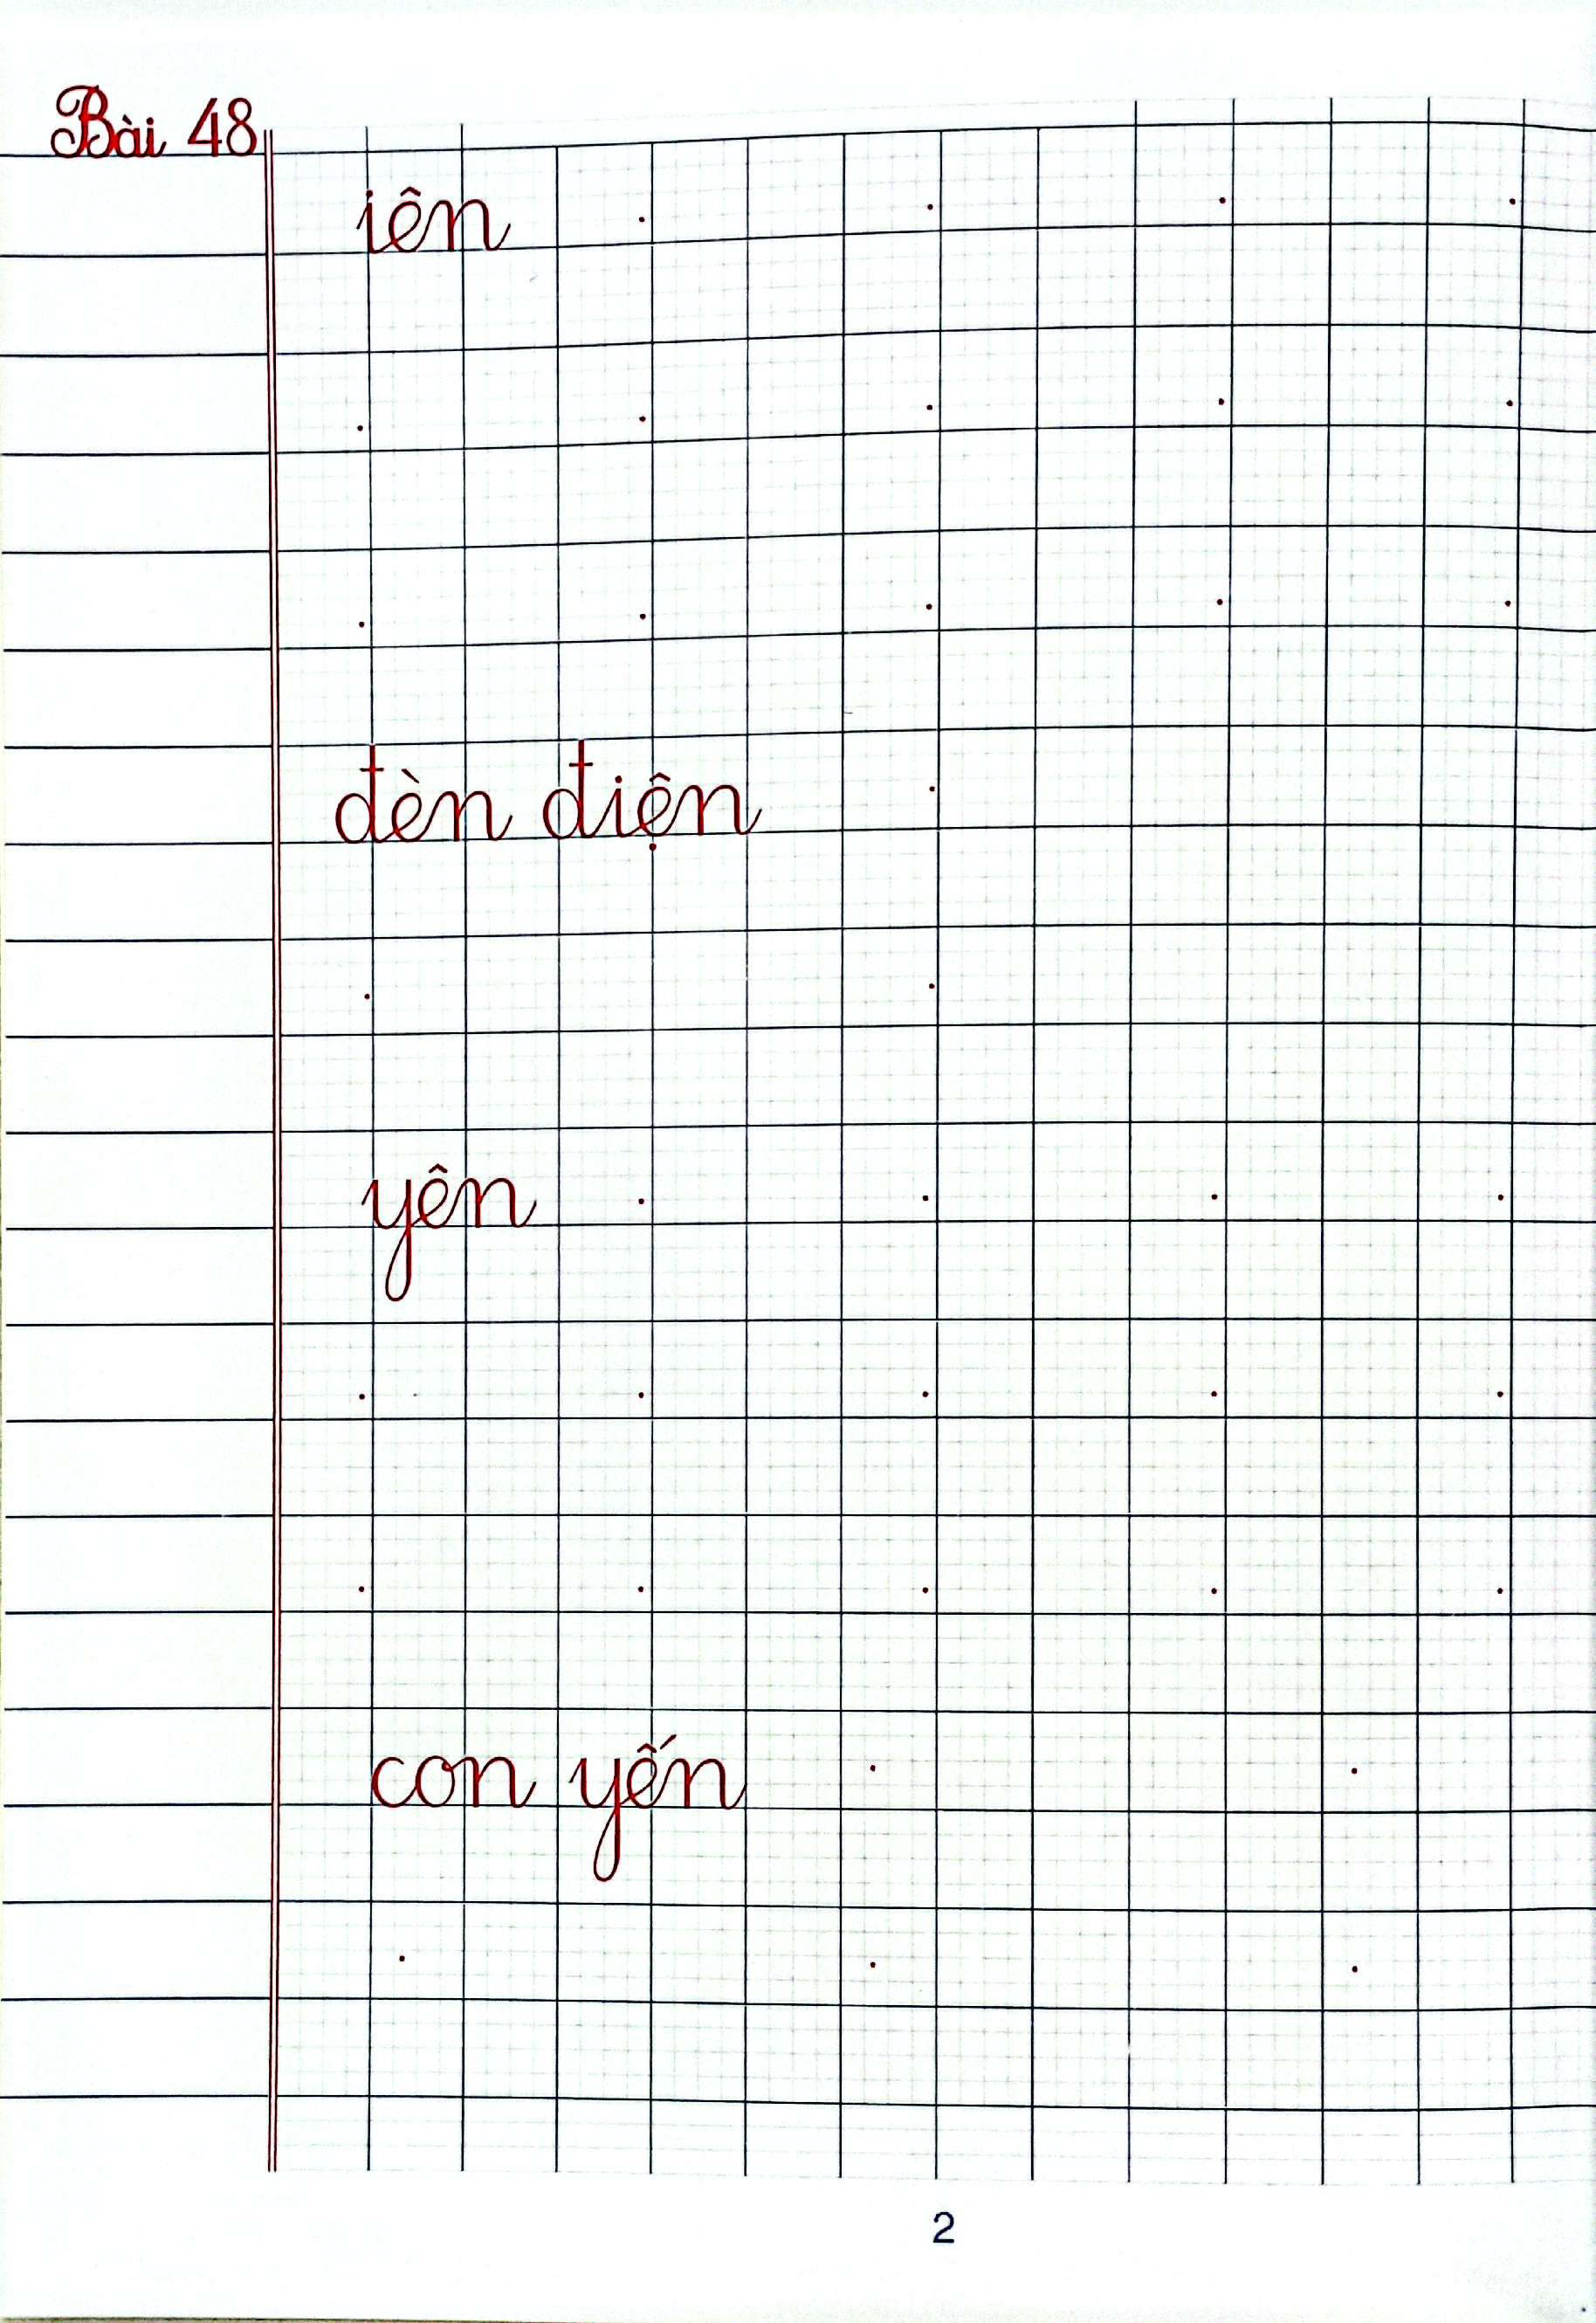 Bài 48
iên
đèn điện
yên
con yến
2